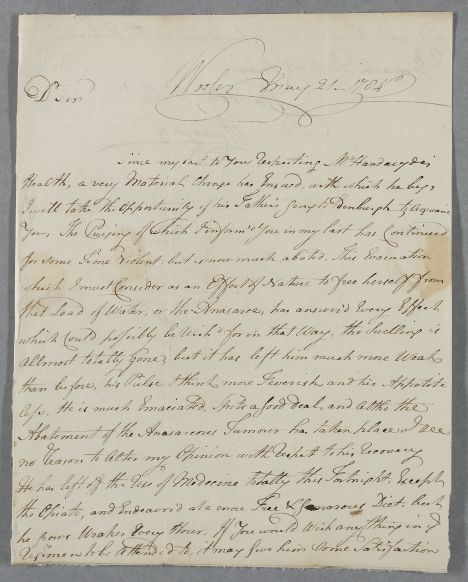 Wooler May 21st 1784
D Sir
Since my last to You respecting Mr Handasydes
Health, a very Material Change has Ensued, with which he begs
I will take the Opportunity of his Fathers going to Edinburgh to Acquaint
You, The Purging of which I inform'd You in my last has Continued
for some time Violent but is now much abated, This Evacuation
which I must Consider as an Effort of Nature to free herself from
that Load of Water, or the Anasarca, has answer'd Every Effect
which Could possibly be Wish'd for in that Way, the Swelling is
allmost totally gone, but it has left him much more Weak
than before, his Pulse I think more Feverish and his Appetite
less. He is much Emaciated, Spits a Good Deal, and altho the
Abatement of the Anasarcous Tumour has taken place, I see
no Reason to Alter my Opinion with Respect to his Recovery
He has left off the Use of Medecine totally this Fortnight, Except
the Opiate, and Endeavord at a more Free & Generous Diet, but
he grows Weaker Every Hour, If You would Wish any thing in
Regimen to be Attended to, it may give him Some Satisfaction